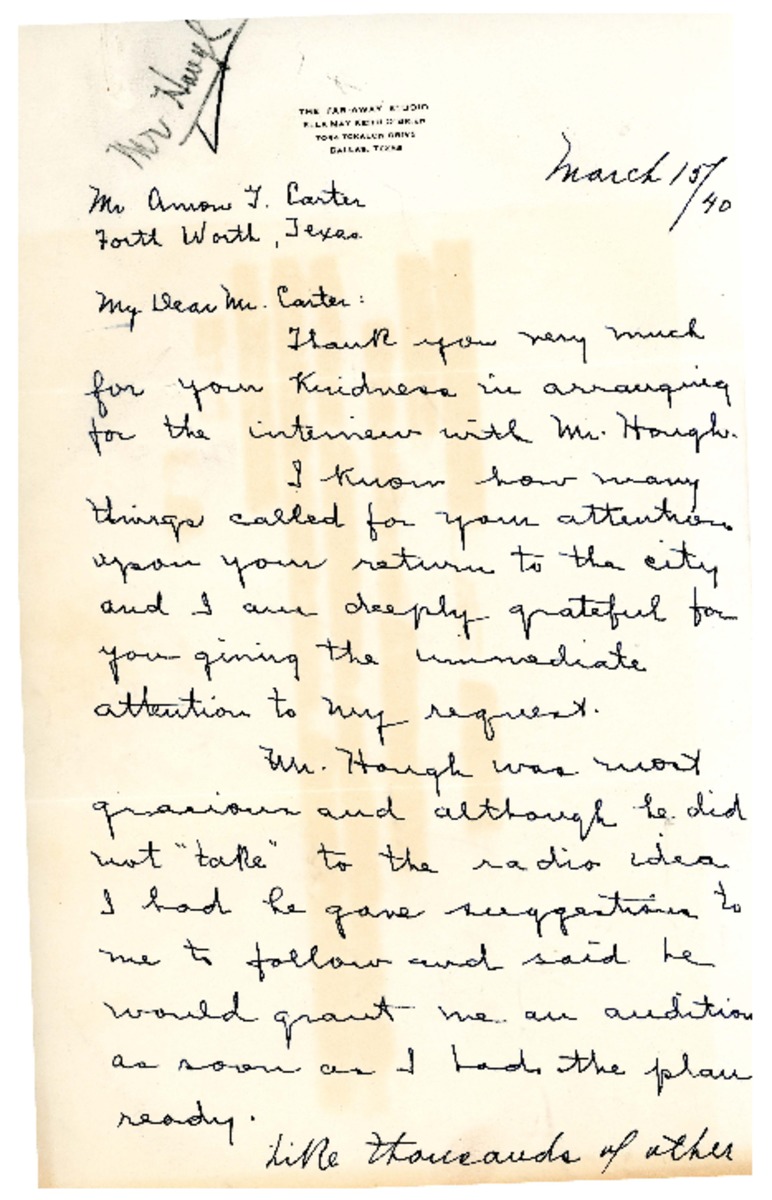 Mr Hough
THE FAR-AWAY STUDIO
ELLA MAY KEITH O'BRIEN
TOKALON DRIVE
DALLAS, TEXAS
March 15/40
Mr Amon G. Carter
Forth Worth, Texas
My Dear Mr. Carter:
Thank you very much
for your kindness in arranging
for the interview with Mr. Hough.
I know how many
things called for your attention
upon your return to the city
and I am deeply grateful for
you giving the immediate
attention to my request.
Mr. Hough was most
gracious and although he did
not "take" to the radio idea
I had he gave suggestions to
me to follow and said he
would grant me an audition
as soon as I had the plan
ready.
Like thousands of other